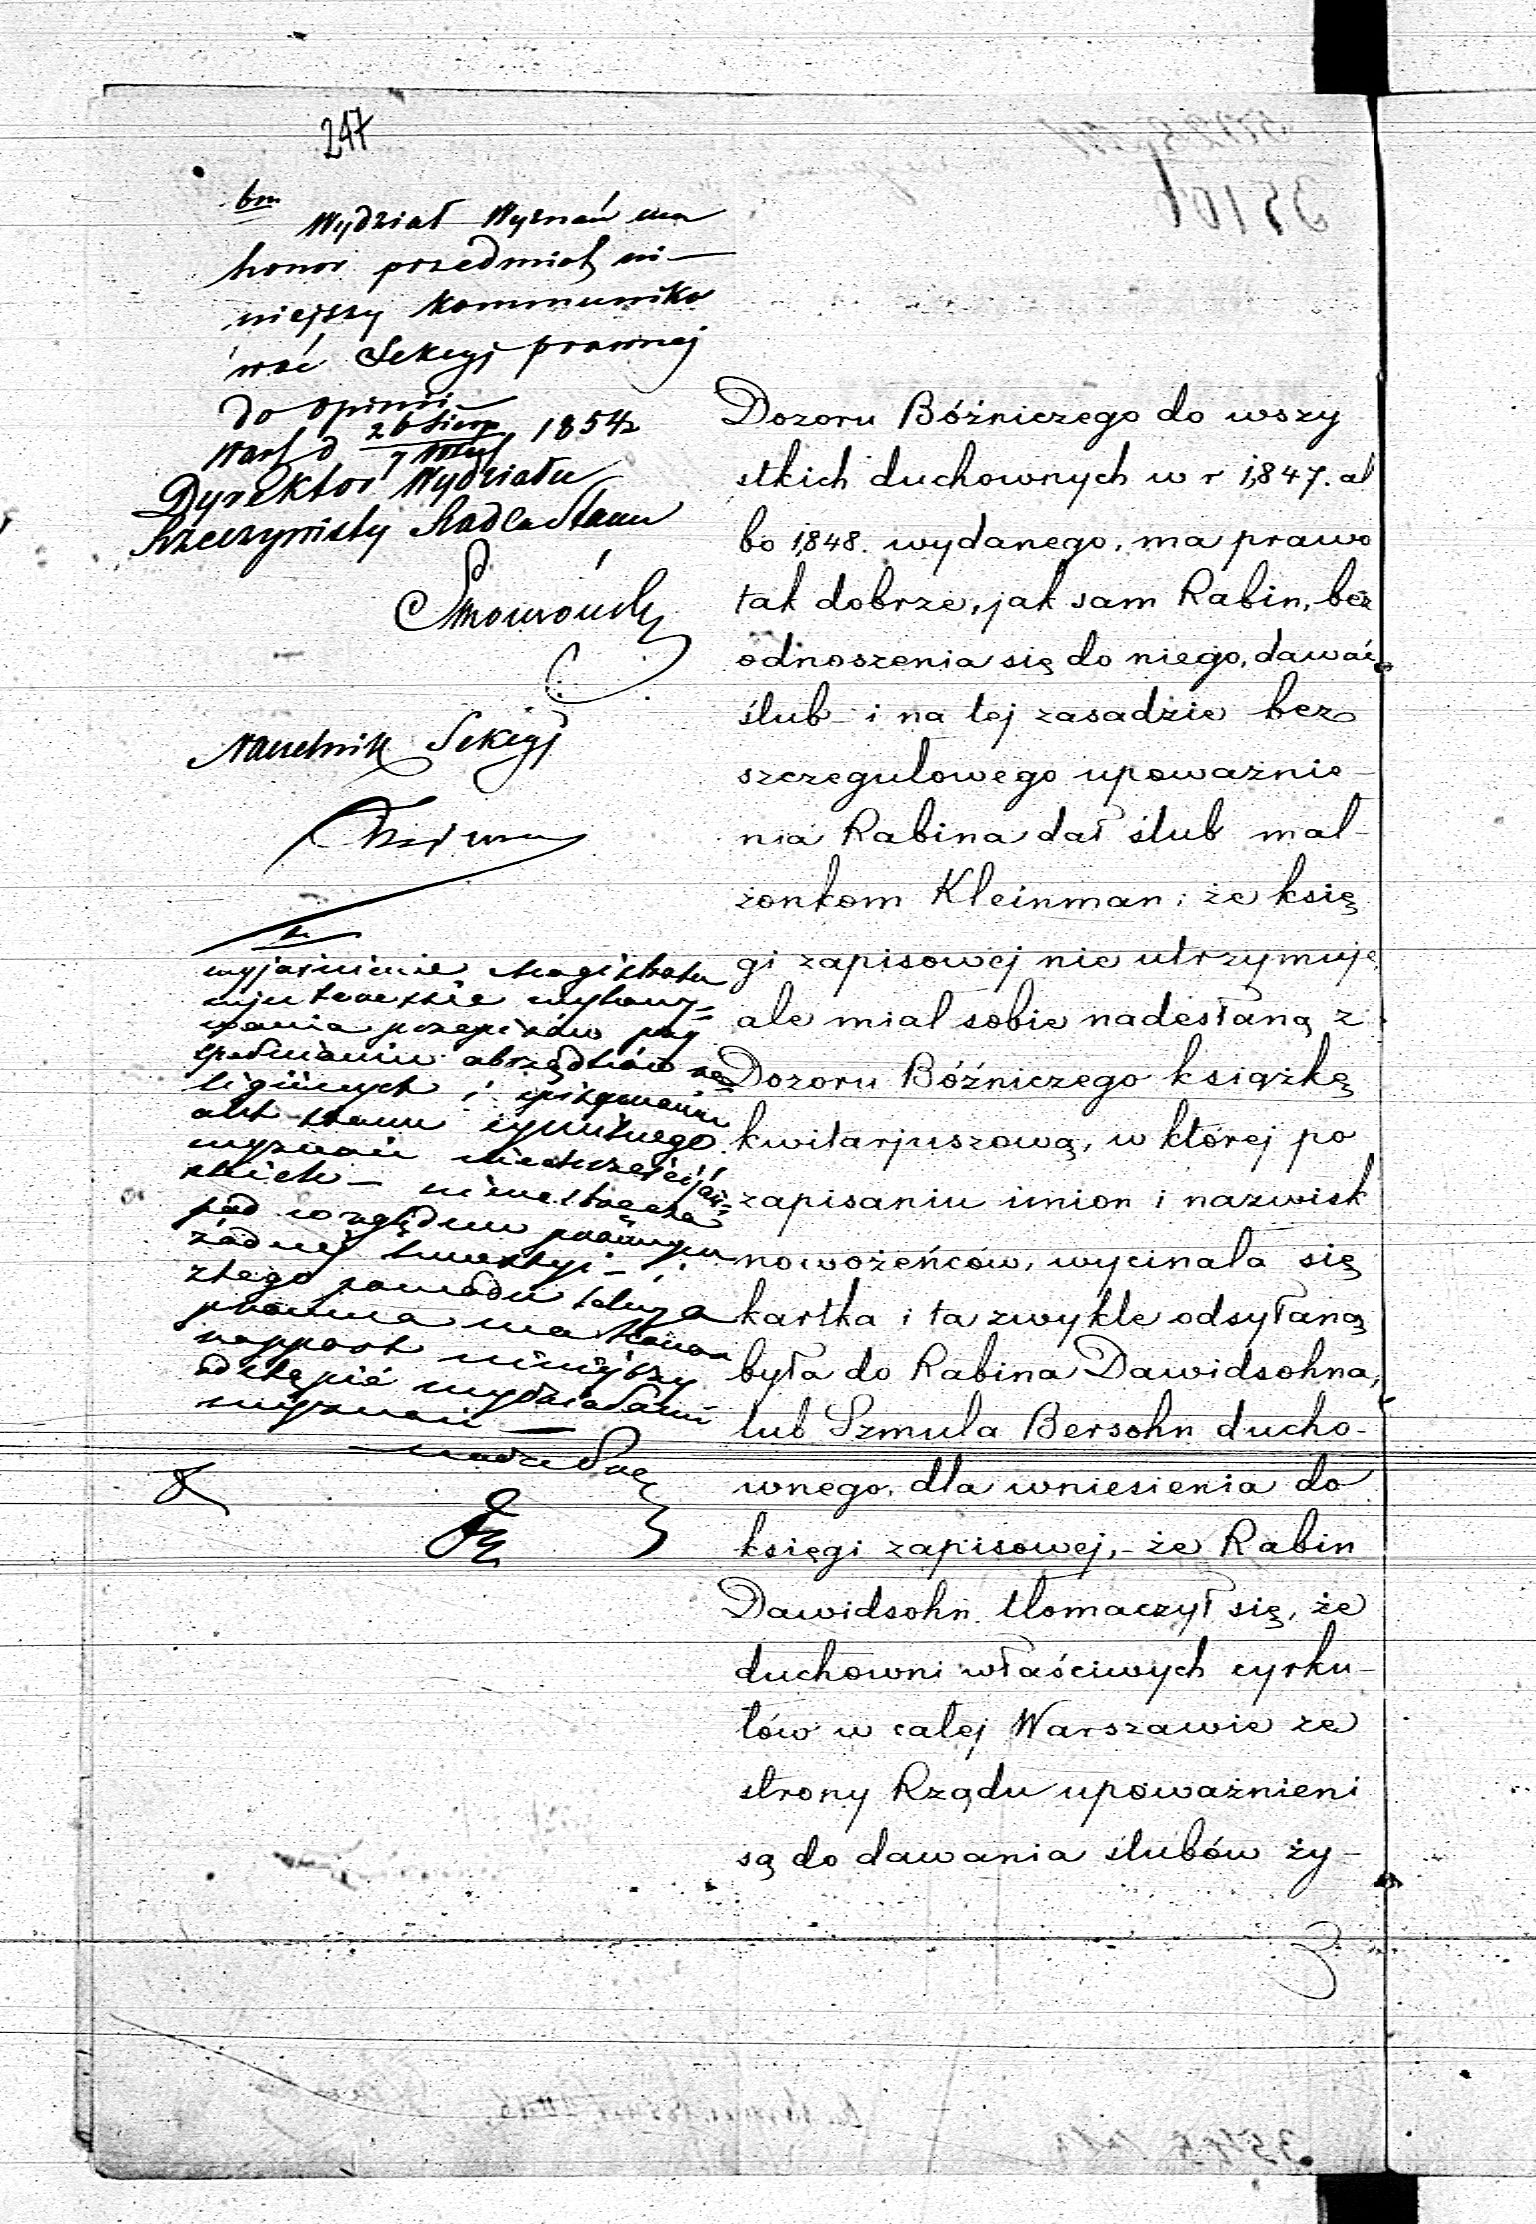 247
bm
Wydział Wyznań ma
honor przedmiot ni-
niejszy kommuniko
wać Sekcyj prawnej
do opinii
Warsz d 26 Sierp 1854
Dyrektor Wydziału
Rzeczywisty Radca Stanu
Naczelnik Sekcyj
wyjaśnienie Magistratu
wania przepisów przy
spełnianiu obrzędów re=
ligijnych i spisywaniu
akt stanu cywilnego
wyznań niechrześcijań=
skich – nienastręcza
pod względem prawnym
żadnej kwestyi –
z tego powodu Sekcya
prawna ma honor
rapport niniejszy
odstąpić wydziałowi
wyznań –
Dozoru Bóżniczego do wszy
stkich duchownych w r 1,847. al
bo 1,848. wydanego, ma prawo
tak dobrze, jak sam Rabin, bez
odnoszenia się do niego, dawać
ślub i na tej zasadzie bez
szczegulowego upoważnie-
nia Rabina dał ślub mal-
żonkom Kleinman; że księ
gi zapisowej nie utrzymuje
ale mial sobie nadesłaną z
Dozoru Bóżniczego książkę
kwitarjuszową, w której po
zapisaniu imion i nazwisk
nowożeńców, wycinala się
kartka i ta zwykle odsyłaną
była do Rabina Dawidsohna,
lub Szmula Bersohn ducho-
wnego, dla wniesienia do
księgi zapisowej,- że Rabin
Dawidsohn tlomaczył się, że
duchowni właściwych cyrku-
łów w całej Warszawie ze
strony Rządu upoważnieni
są do dawania ślubów ży-